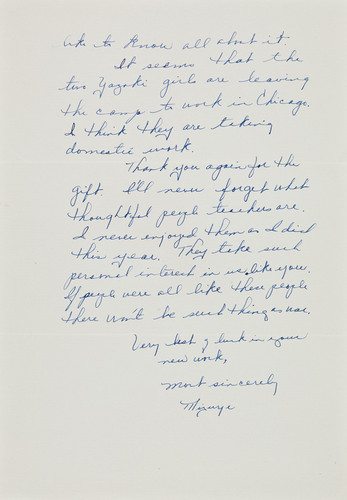 like to know all about it.
It seems that the
two Yazaki girls are leaving
the camp to work in Chicago.
I think they are taking
domestic work.
Thank you again for the
gift. I'll never forget what
thoughtful people teachers are.
I never enjoyed them as I did
this year. They take such
personal interest in us like you.
If people were all like these people
there won't be such thing as war.
Very best of luck in your
new work,
Most sincerely